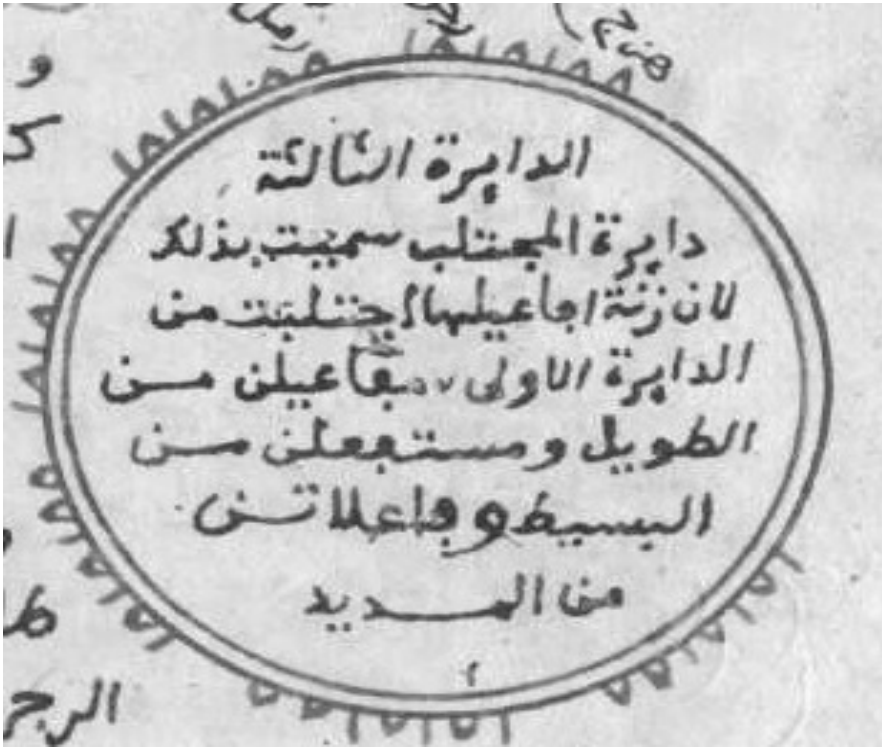 هزج
الدايرة الثالثة
دايرة المجتلب سميت بذلك
لان زنة افاعيلها اجتلبت من
الدايرة الاولى مفاعيلن من
الطويل ومستفعلن من
البسيط وفاعلاتن
من المديد
الرجز